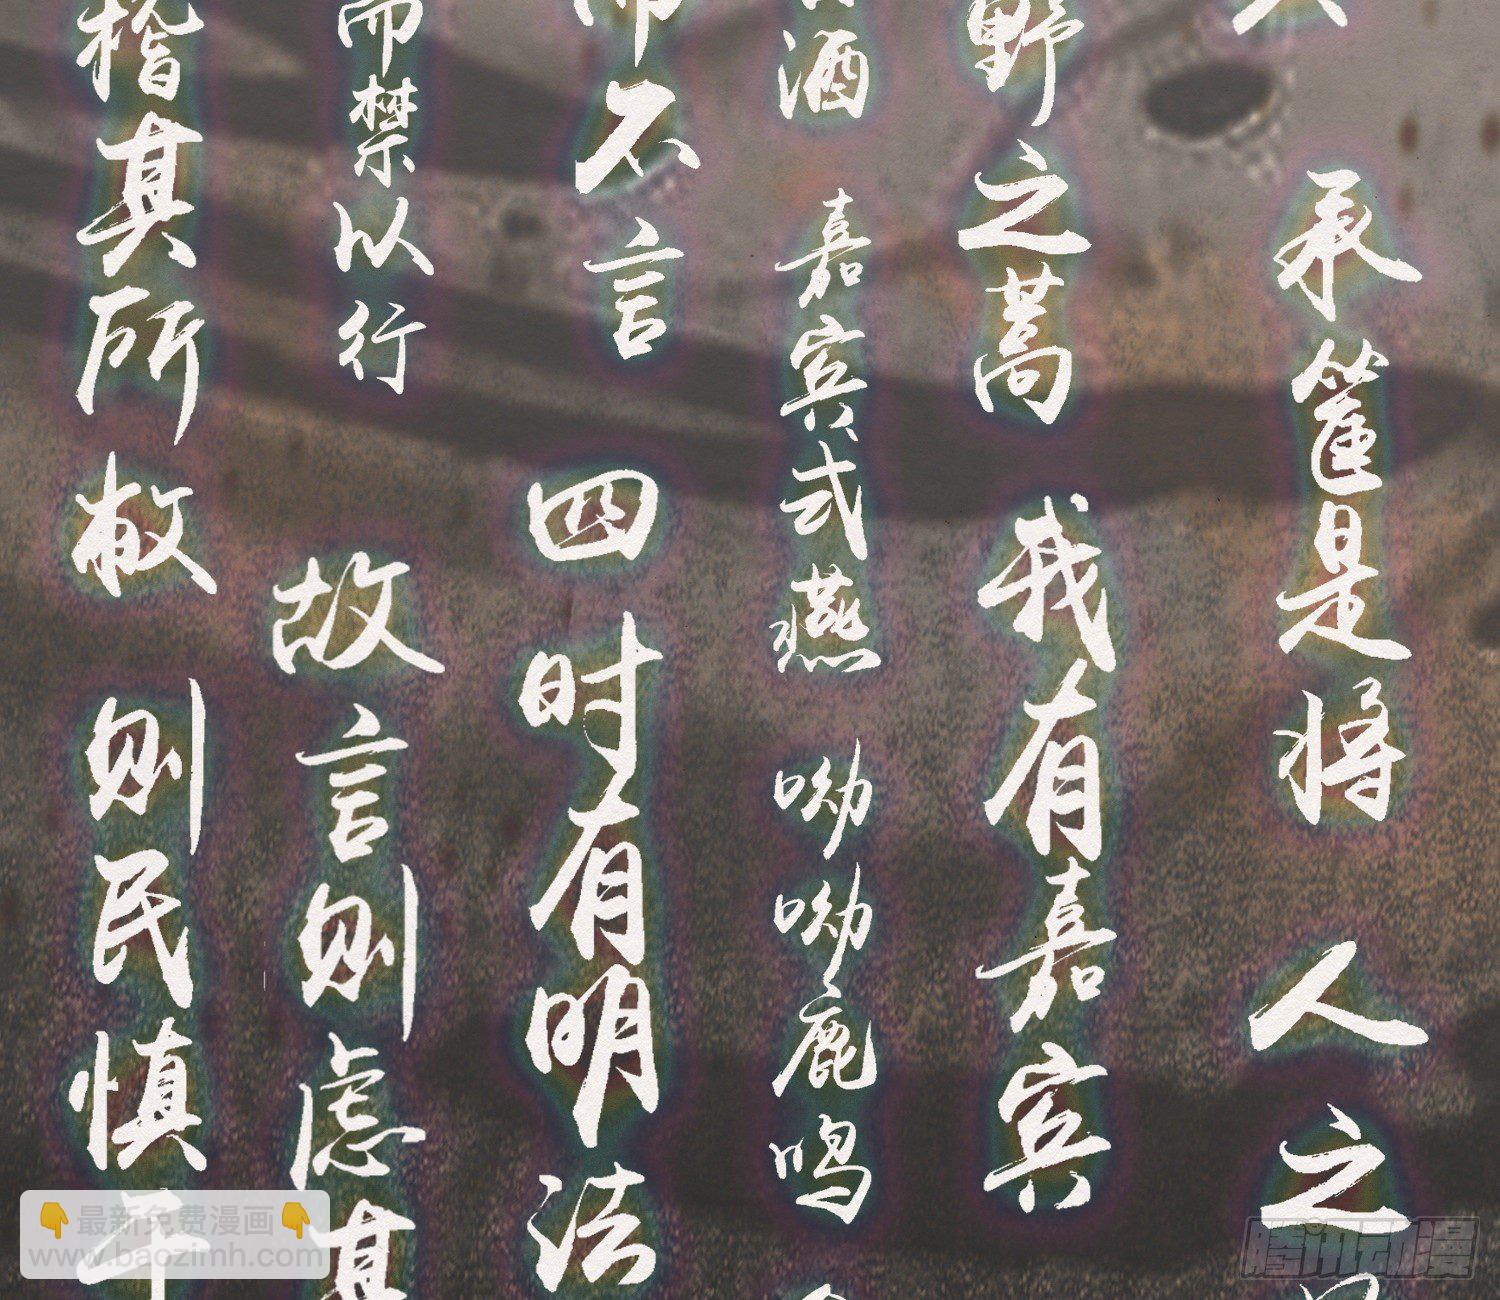 承筐是将 人之
野之蒿 我有嘉宾
酒 嘉宾式燕 呦呦鹿鸣
而不言 四时有明法
而禁以行 故言则虑其
稽其所敝 则民慎
最新免费漫画
www.baozimh.com
腾讯动漫